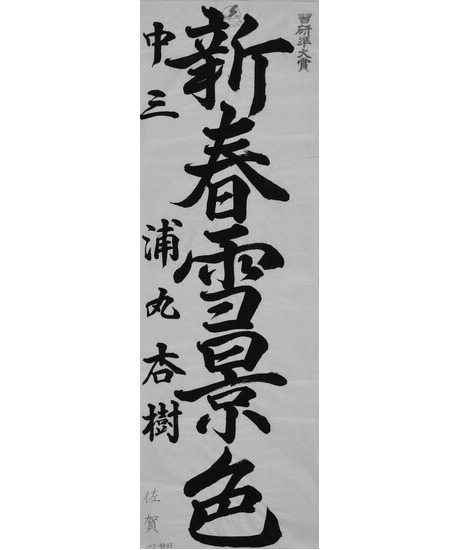 習研準大賞
新春雪景色
中三 浦丸杏樹
佐賀